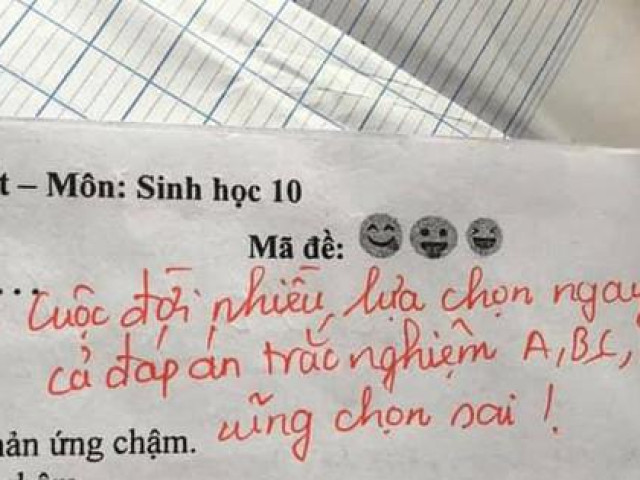 t – Môn: Sinh học 10
Mã đề:
...
Cuộc đời nhiều lựa chọn ngay
cả đáp án trắc nghiệm A, B, C,
cũng chọn sai !
ản ứng chậm.